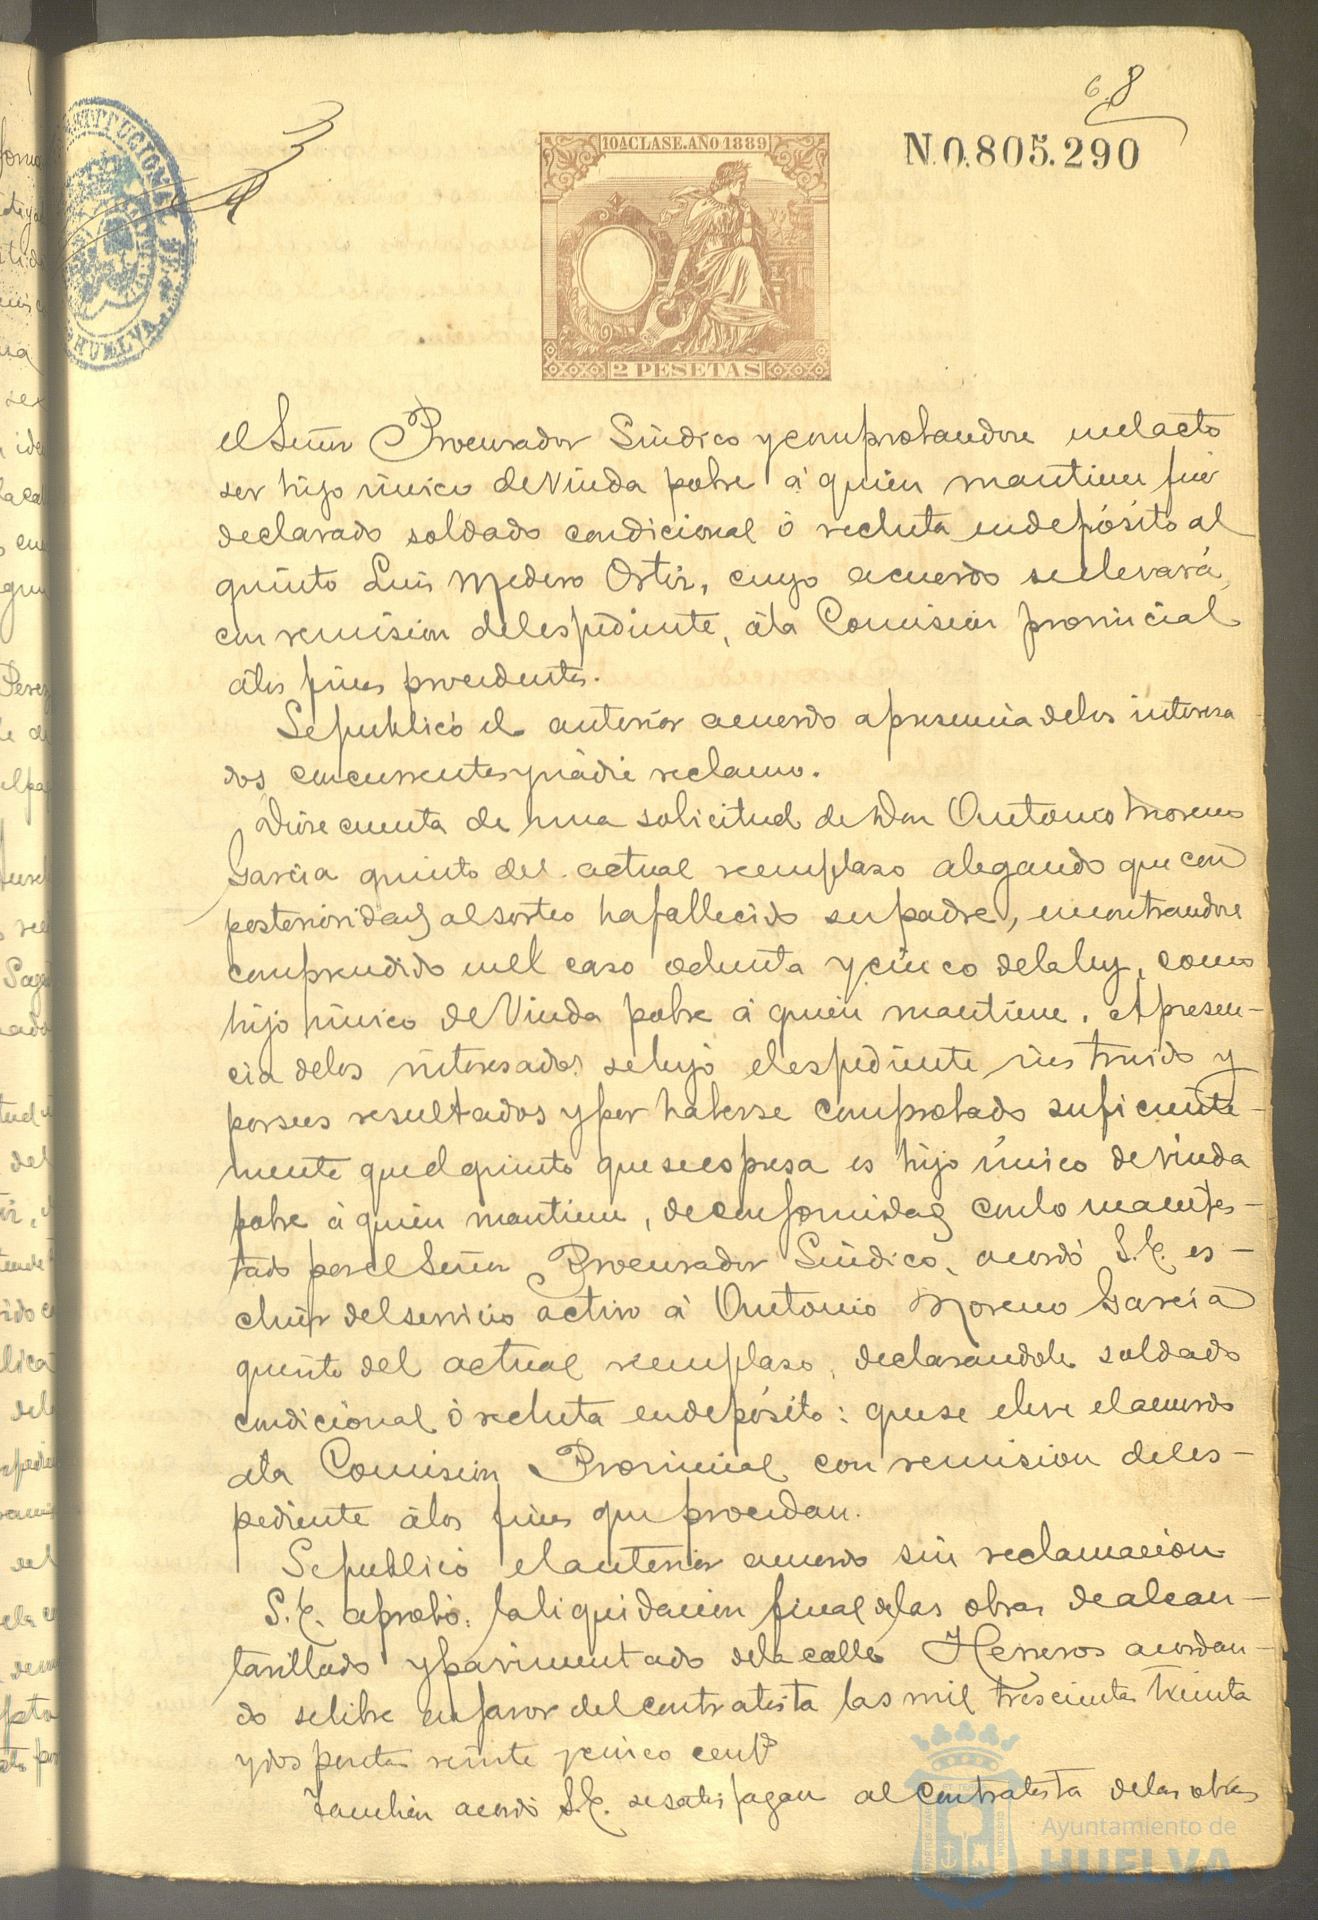 6 8
10ª CLASE. AÑO 1889
N.0.805.290
2 PESETAS
HUELVA
el Señor Procurador Sindico y comprobandose en el acto
ser hijo único de Viuda pobre á quien mantiene fué
declarado soldado condicional ó recluta en depósito al
quinto Luis Medero Ortiz, cuyo acuerdo se elevará,
con remision del espediente, á la Comision provincial
á los fines procedentes.
Se publicó el anterior acuerdo a presencia de los interesa
dos concurrentes y nadie reclamo.
Diose cuenta de una solicitud de Don Antonio Moreno
Garcia quinto del actual reemplaso alegando que con
posterioridad al sorteo ha fallecido su padre, encontrandose
comprendido en el caso ochenta y cinco de la ley, como
hijo único de Viuda pobre á quien mantiene. A presen-
cia de los interesados se leyó el espediente instruido y
por sus resultados y por haberse comprobado suficiente-
mente que el quinto que se espresa es hijo único de viuda
pobre á quien mantiene, de conformidad con lo manifes-
tado por el Señor Procurador Sindico, acordó S.E. es-
cluir del servicio activo á Antonio Moreno Garcia
quinto del actual reemplaso, declarandole soldado
condicional ó recluta en depósito: que se eleve el acuerdo
a la Comision Provincial con remision del es-
pediente á los fines que procedan.
Se publicó el anterior acuerdo sin reclamacion.
S.E. aprobó la liquidacion final de las obras de alcan-
tarillado y pavimentado de la calle Herreros acordan-
do se libre en favor del contratista las mil trescientas treinta
y dos pesetas veinte y cinco centˢ
Tambien acordó S.E. se satisfagan al contratista de las obras
Ayuntamiento de
HUELVA